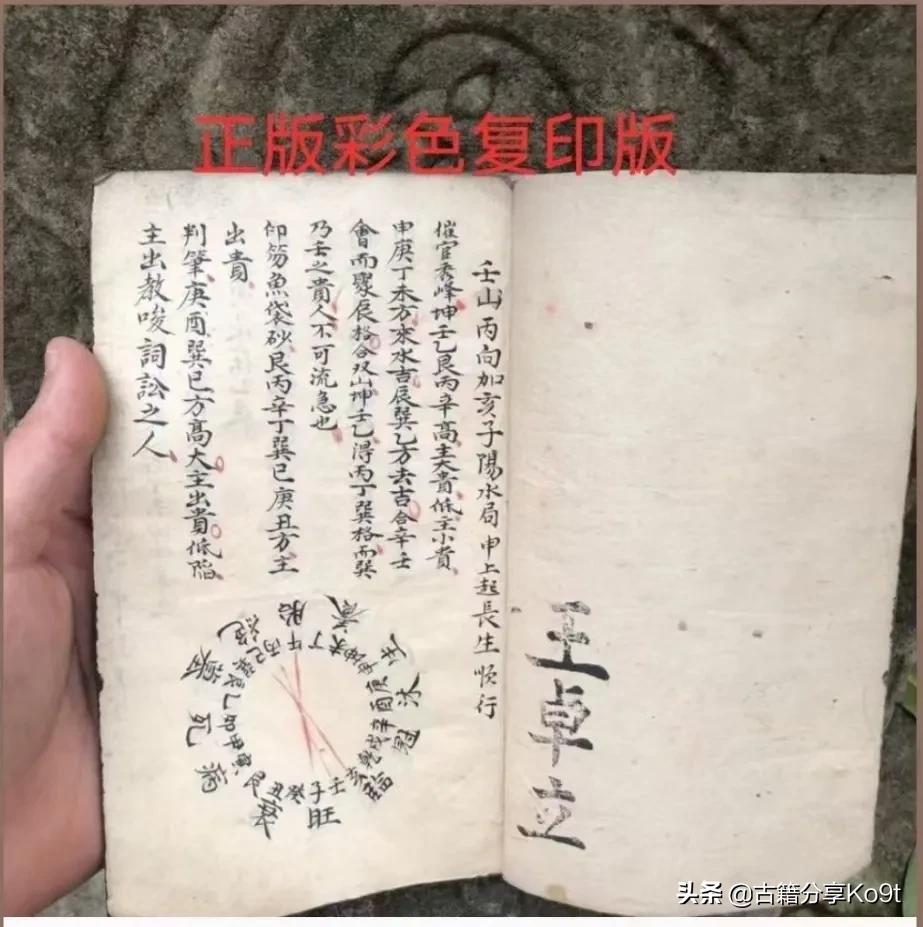 正版彩色复印版
王卓立
壬山丙向加亥子陽水局申上起長生順行
催官秀峰坤壬乙艮丙辛高主大貴低主小貴
申庚丁未方來水吉辰巽乙方去吉合辛壬
會而聚辰格合双山坤壬乙得丙丁巽格而巽
乃壬之貴人不可流急也
印笏魚袋砂艮丙辛丁巽巳庚丑方主
出貴
判筆庚酉巽巳方高大主出貴低陷
主出教唆詞訟之人
養生沐冠臨旺衰病死葬絕胎
午丁未坤申庚酉辛戌乾亥壬子癸丑艮寅甲卯乙辰巽巳丙
头条 @古籍分享Ko9t